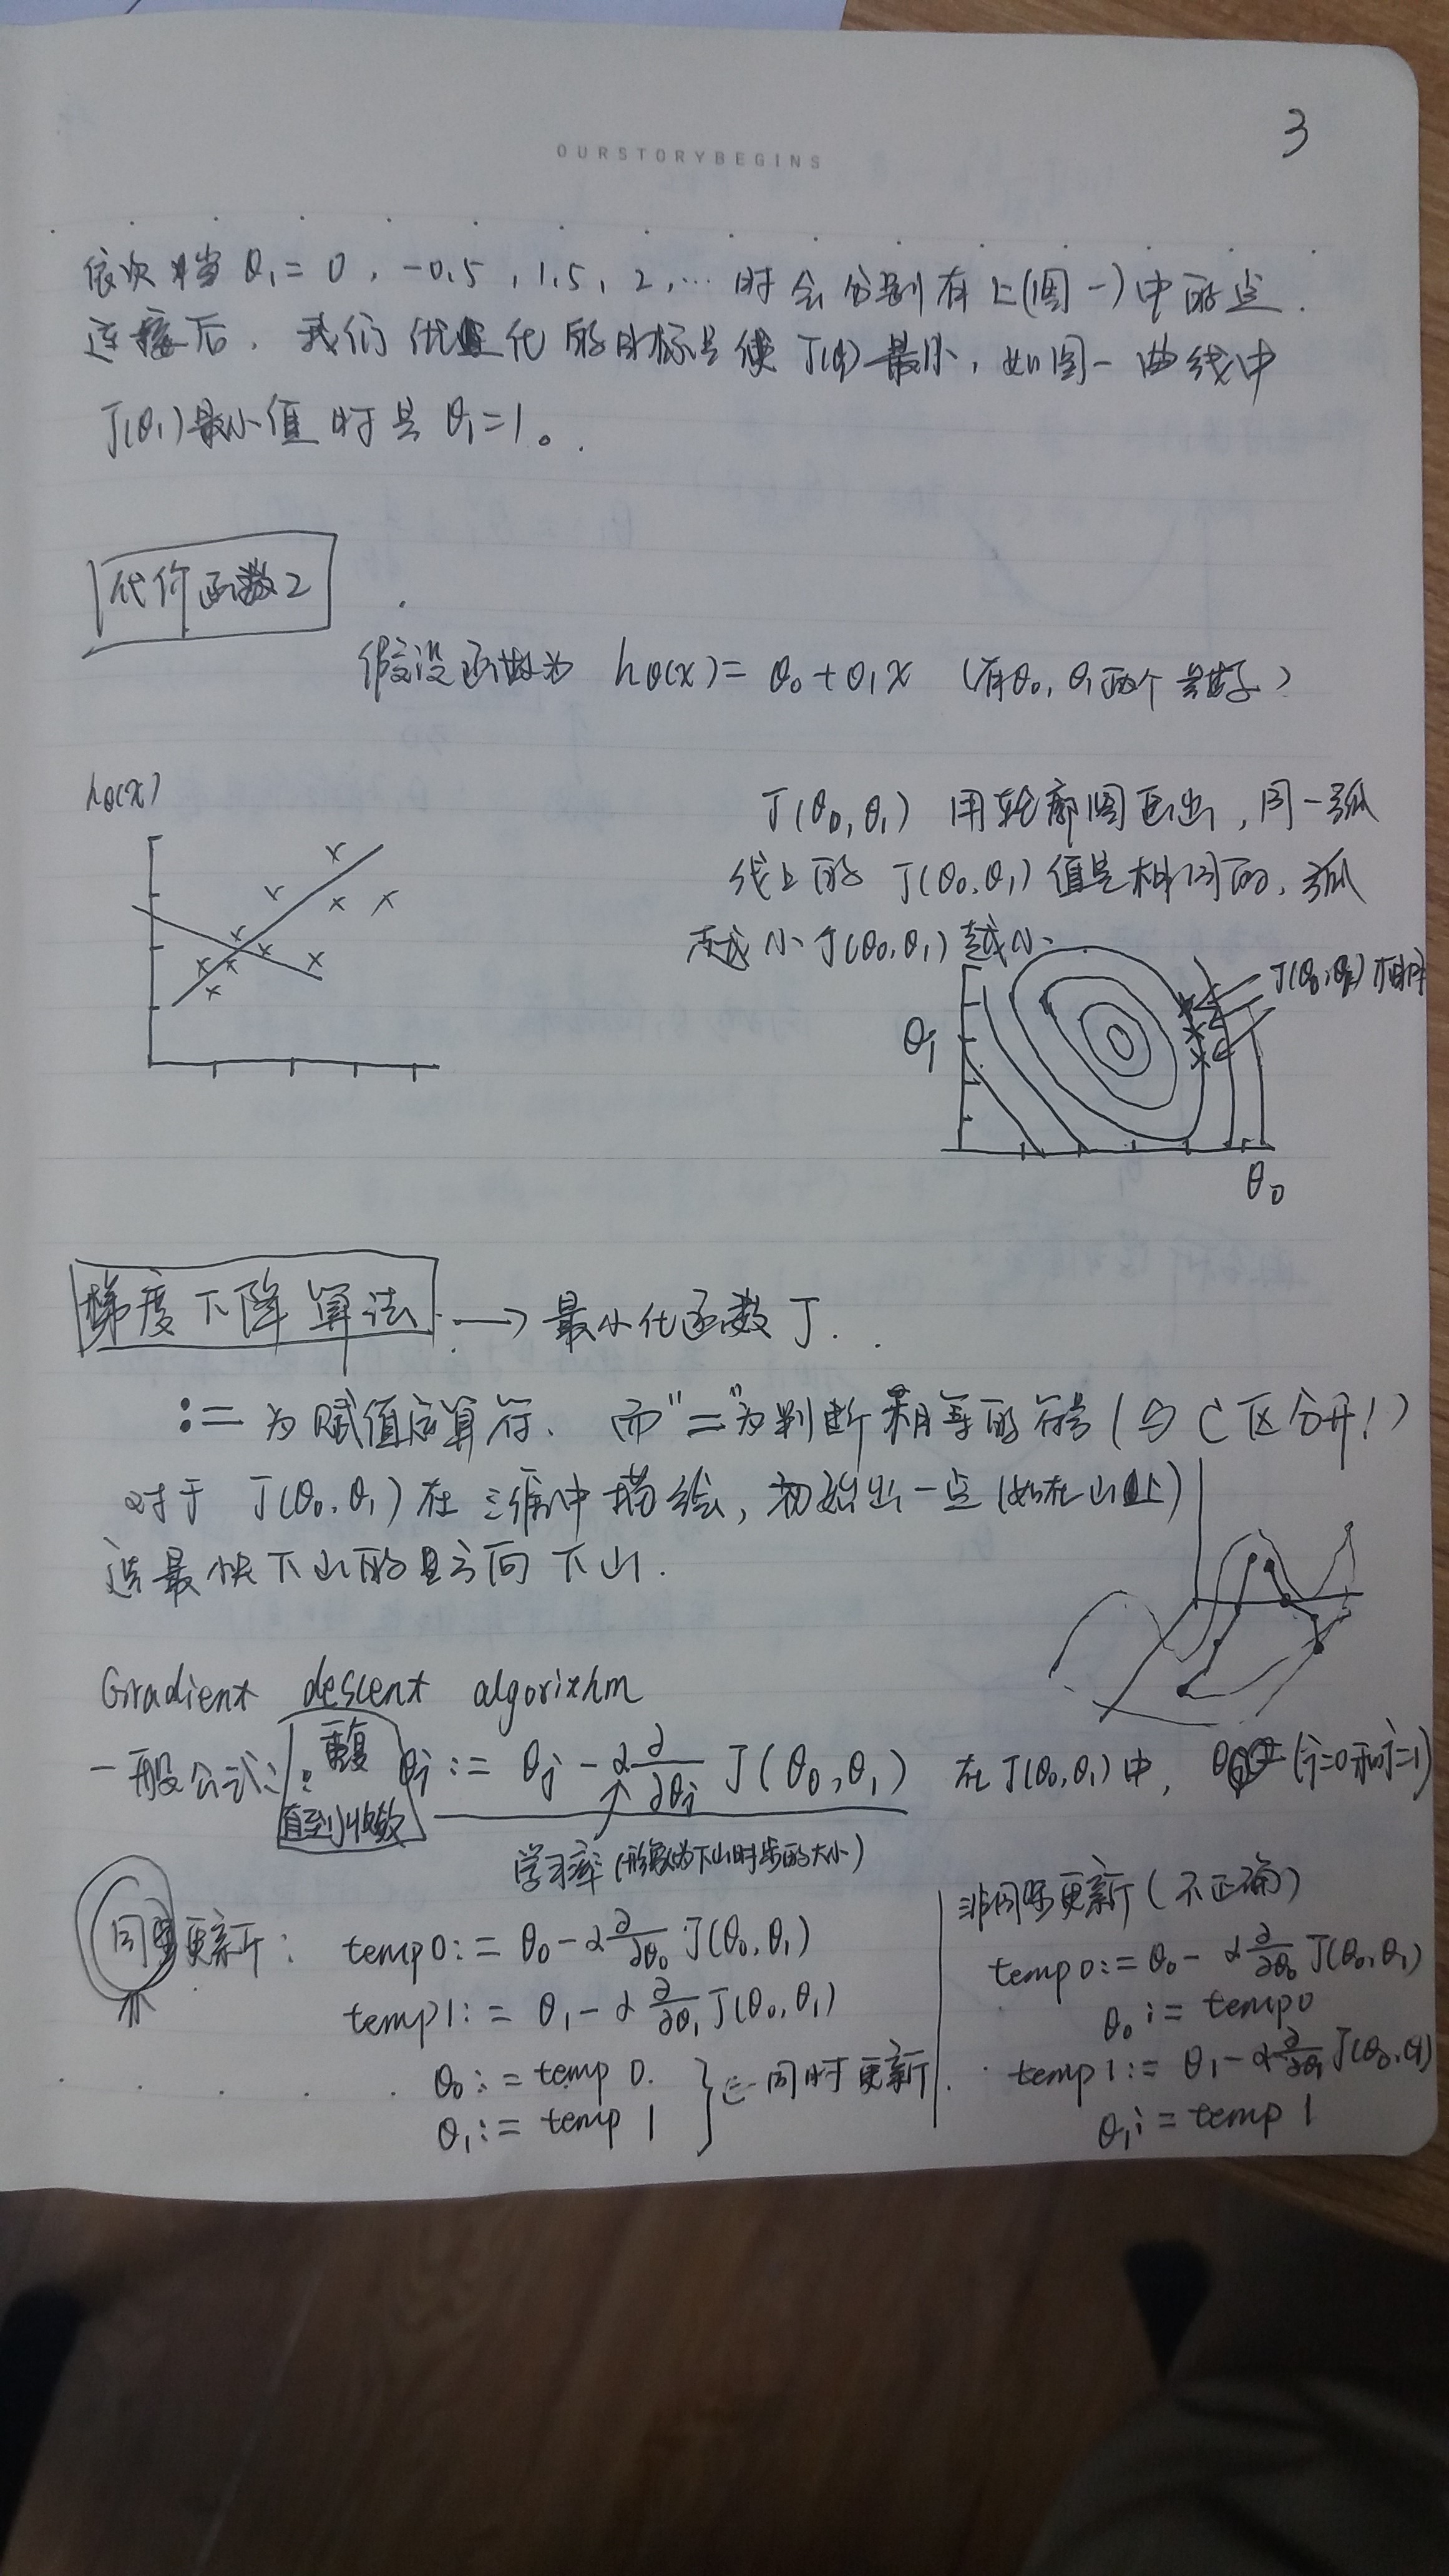 3
OURSTORYBEGINS
依次当 θ₁ = 0, -0.5, 1.5, 2, … 时会分别有上(图一)中的点.
连接后, 我们优化的目标是使 J(θ₁) 最小, 如图一曲线中
J(θ₁)最小值时是 θ₁=1。
代价函数2
假设函数为 hθ(x) = θ₀ + θ₁x (有θ₀, θ₁两个参数)
hθ(x)
J(θ₀, θ₁) 用轮廓图画出, 同一弧
线上的 J(θ₀, θ₁) 值是相同的, 弧
越小 J(θ₀, θ₁) 越小.
J(θ₀, θ₁) 相同
θ₁
θ₀
梯度下降算法 → 最小化函数 J.
:= 为赋值运算符、而"="为判断相等的符号(与C区分开!)
对于 J(θ₀, θ₁) 在三维中描绘, 初始出一点(如在山上)
选最快下山的方向下山.
Gradient descent algorithm
一般公式: 重复 θj := θj - α ∂/∂θj J(θ₀, θ₁) 在 J(θ₀, θ₁) 中, (j=0和j=1)
直到收敛
学习率(形象为下山时步的大小)
同步更新: temp0 := θ₀ - α ∂/∂θ₀ J(θ₀, θ₁)
temp1 := θ₁ - α ∂/∂θ₁ J(θ₀, θ₁)
θ₀ := temp 0.
θ₁ := temp 1
} ⇐ 同时更新
非同步更新(不正确)
temp0 := θ₀ - α ∂/∂θ₀ J(θ₀, θ₁)
θ₀ := temp0
temp1 := θ₁ - α ∂/∂θ₁ J(θ₀, θ₁)
θ₁ := temp 1